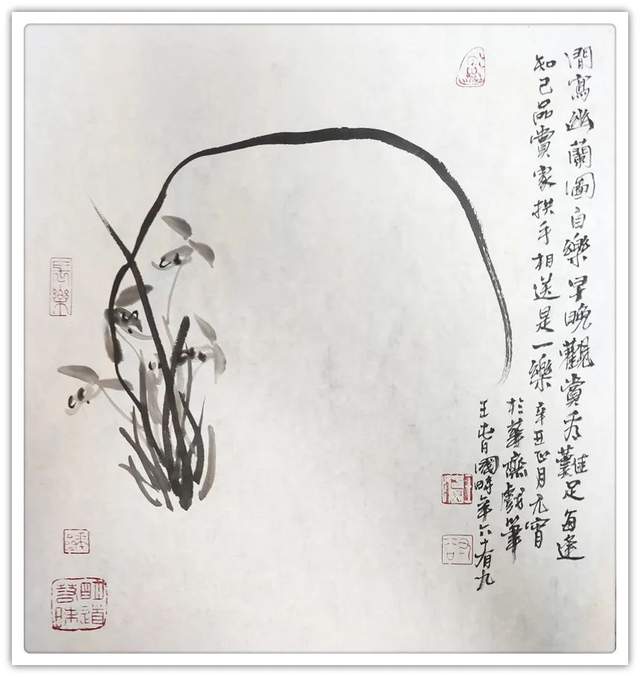 閒寫幽蘭圖自樂早晚觀賞難足每逢
知己品賞家拱手相送是一樂辛丑正月元宵
於華齋戲筆
王旾國時年六十有九
長樂